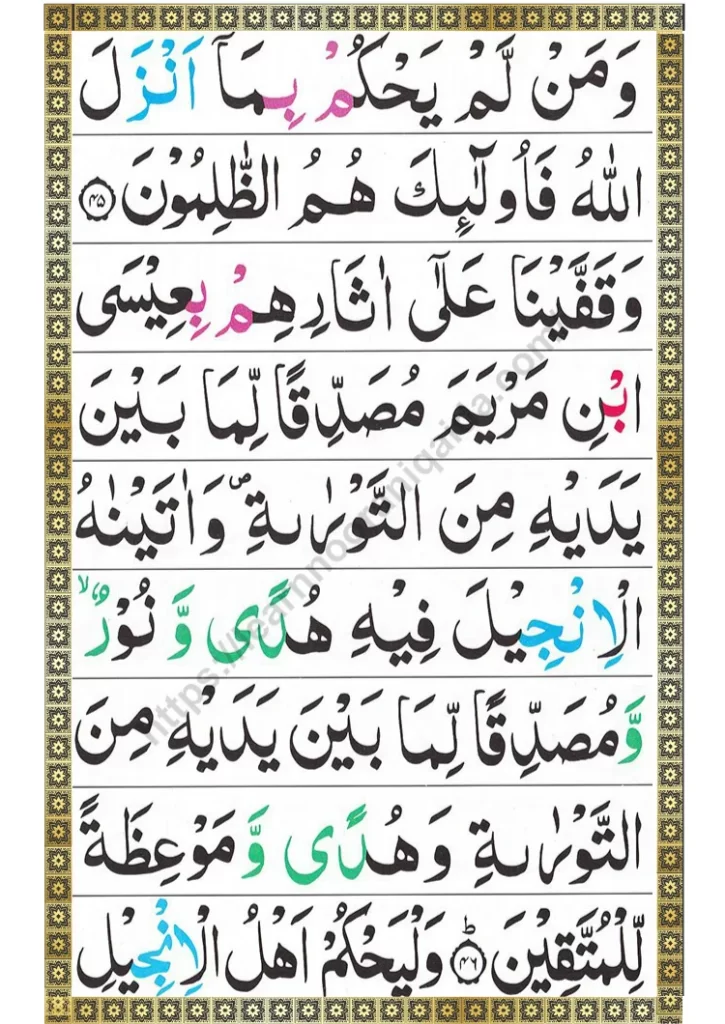 وَمَنْ لَّمْ يَحْكُمْ بِمَآ اَنْزَلَ
اللّٰهُ فَاُولٰٓئِكَ هُمُ الظّٰلِمُوْنَ ﴿۴۵﴾
وَقَفَّيْنَا عَلٰٓى اٰثَارِهِمْ بِعِيْسَى
ابْنِ مَرْيَمَ مُصَدِّقًا لِّمَا بَيْنَ
يَدَيْهِ مِنَ التَّوْرٰىةِ ۪ وَاٰتَيْنٰهُ
الْاِنْجِيْلَ فِيْهِ هُدًى وَّ نُوْرٌ ۙ
وَّمُصَدِّقًا لِّمَا بَيْنَ يَدَيْهِ مِنَ
التَّوْرٰىةِ وَهُدًى وَّ مَوْعِظَةً
لِّلْمُتَّقِيْنَ ﴿۴۶﴾ؕ وَلْيَحْكُمْ اَهْلُ الْاِنْجِيْلِ
https://learnnooraniqaida.com/